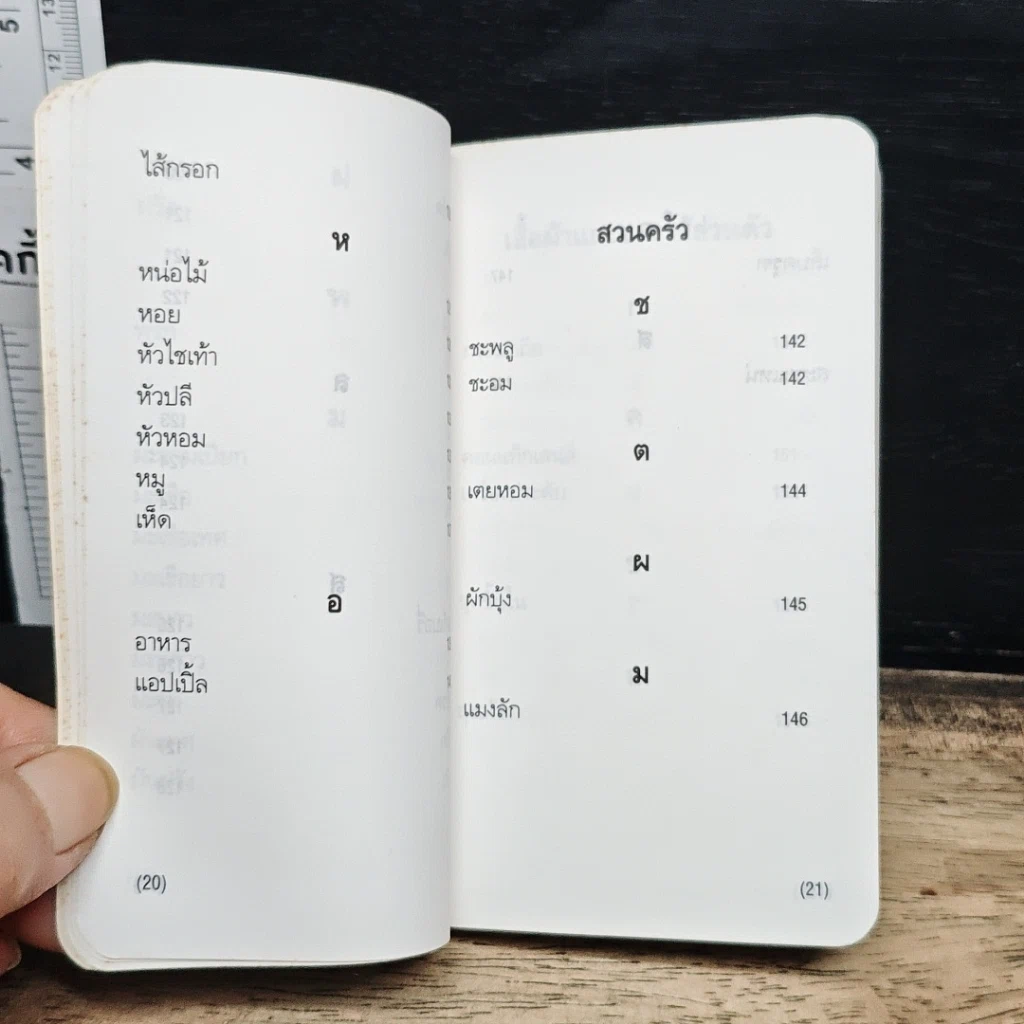 ไส้กรอก
ห
หน่อไม้
หอย
หัวไชเท้า
หัวปลี
หัวหอม
หมู
เห็ด
อ
อาหาร
แอปเปิ้ล
(20)
สวนครัว
ช
ชะพลู 142
ชะอม 142
ต
เตยหอม 144
ผ
ผักบุ้ง 145
ม
แมงลัก 146
(21)
5
13
12
4